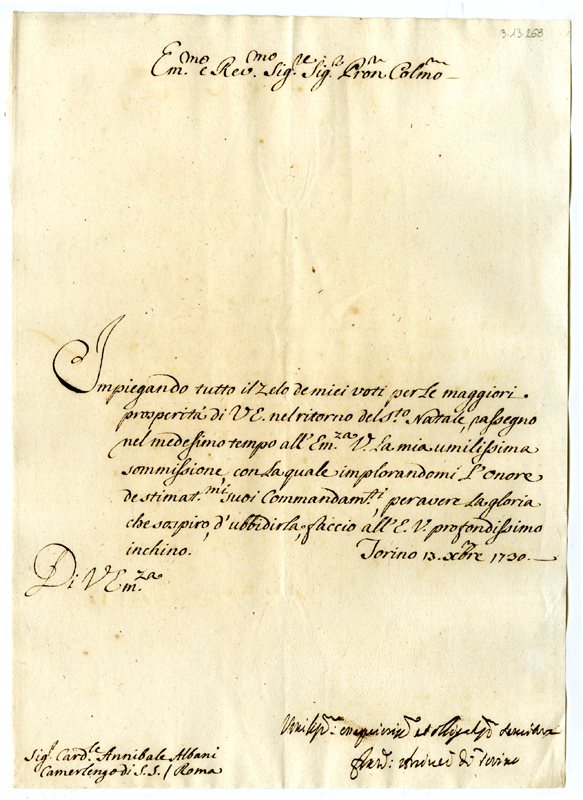 3-13-268
Em.mo e Rev.mo Sig.re Sig.r Pron Colmo
Impiegando tutto il Zelo de miei voti per le maggiori
prosperità di V E. nel ritorno del S.to Natale, rassegno
nel medesimo tempo all' Em.za V. La mia umilissima
sommissione, con la quale implorandomi L'onore
de stimat.mi suoi Commandam.ti, per avere la gloria
che sospiro, d'ubbidirla, faccio all' E. V. profondissimo
inchino. Torino 13. Xbre 1730.
Di V Em.za
Sig.r Card.le Annibale Albani
Camerlengo di S.S. / Roma